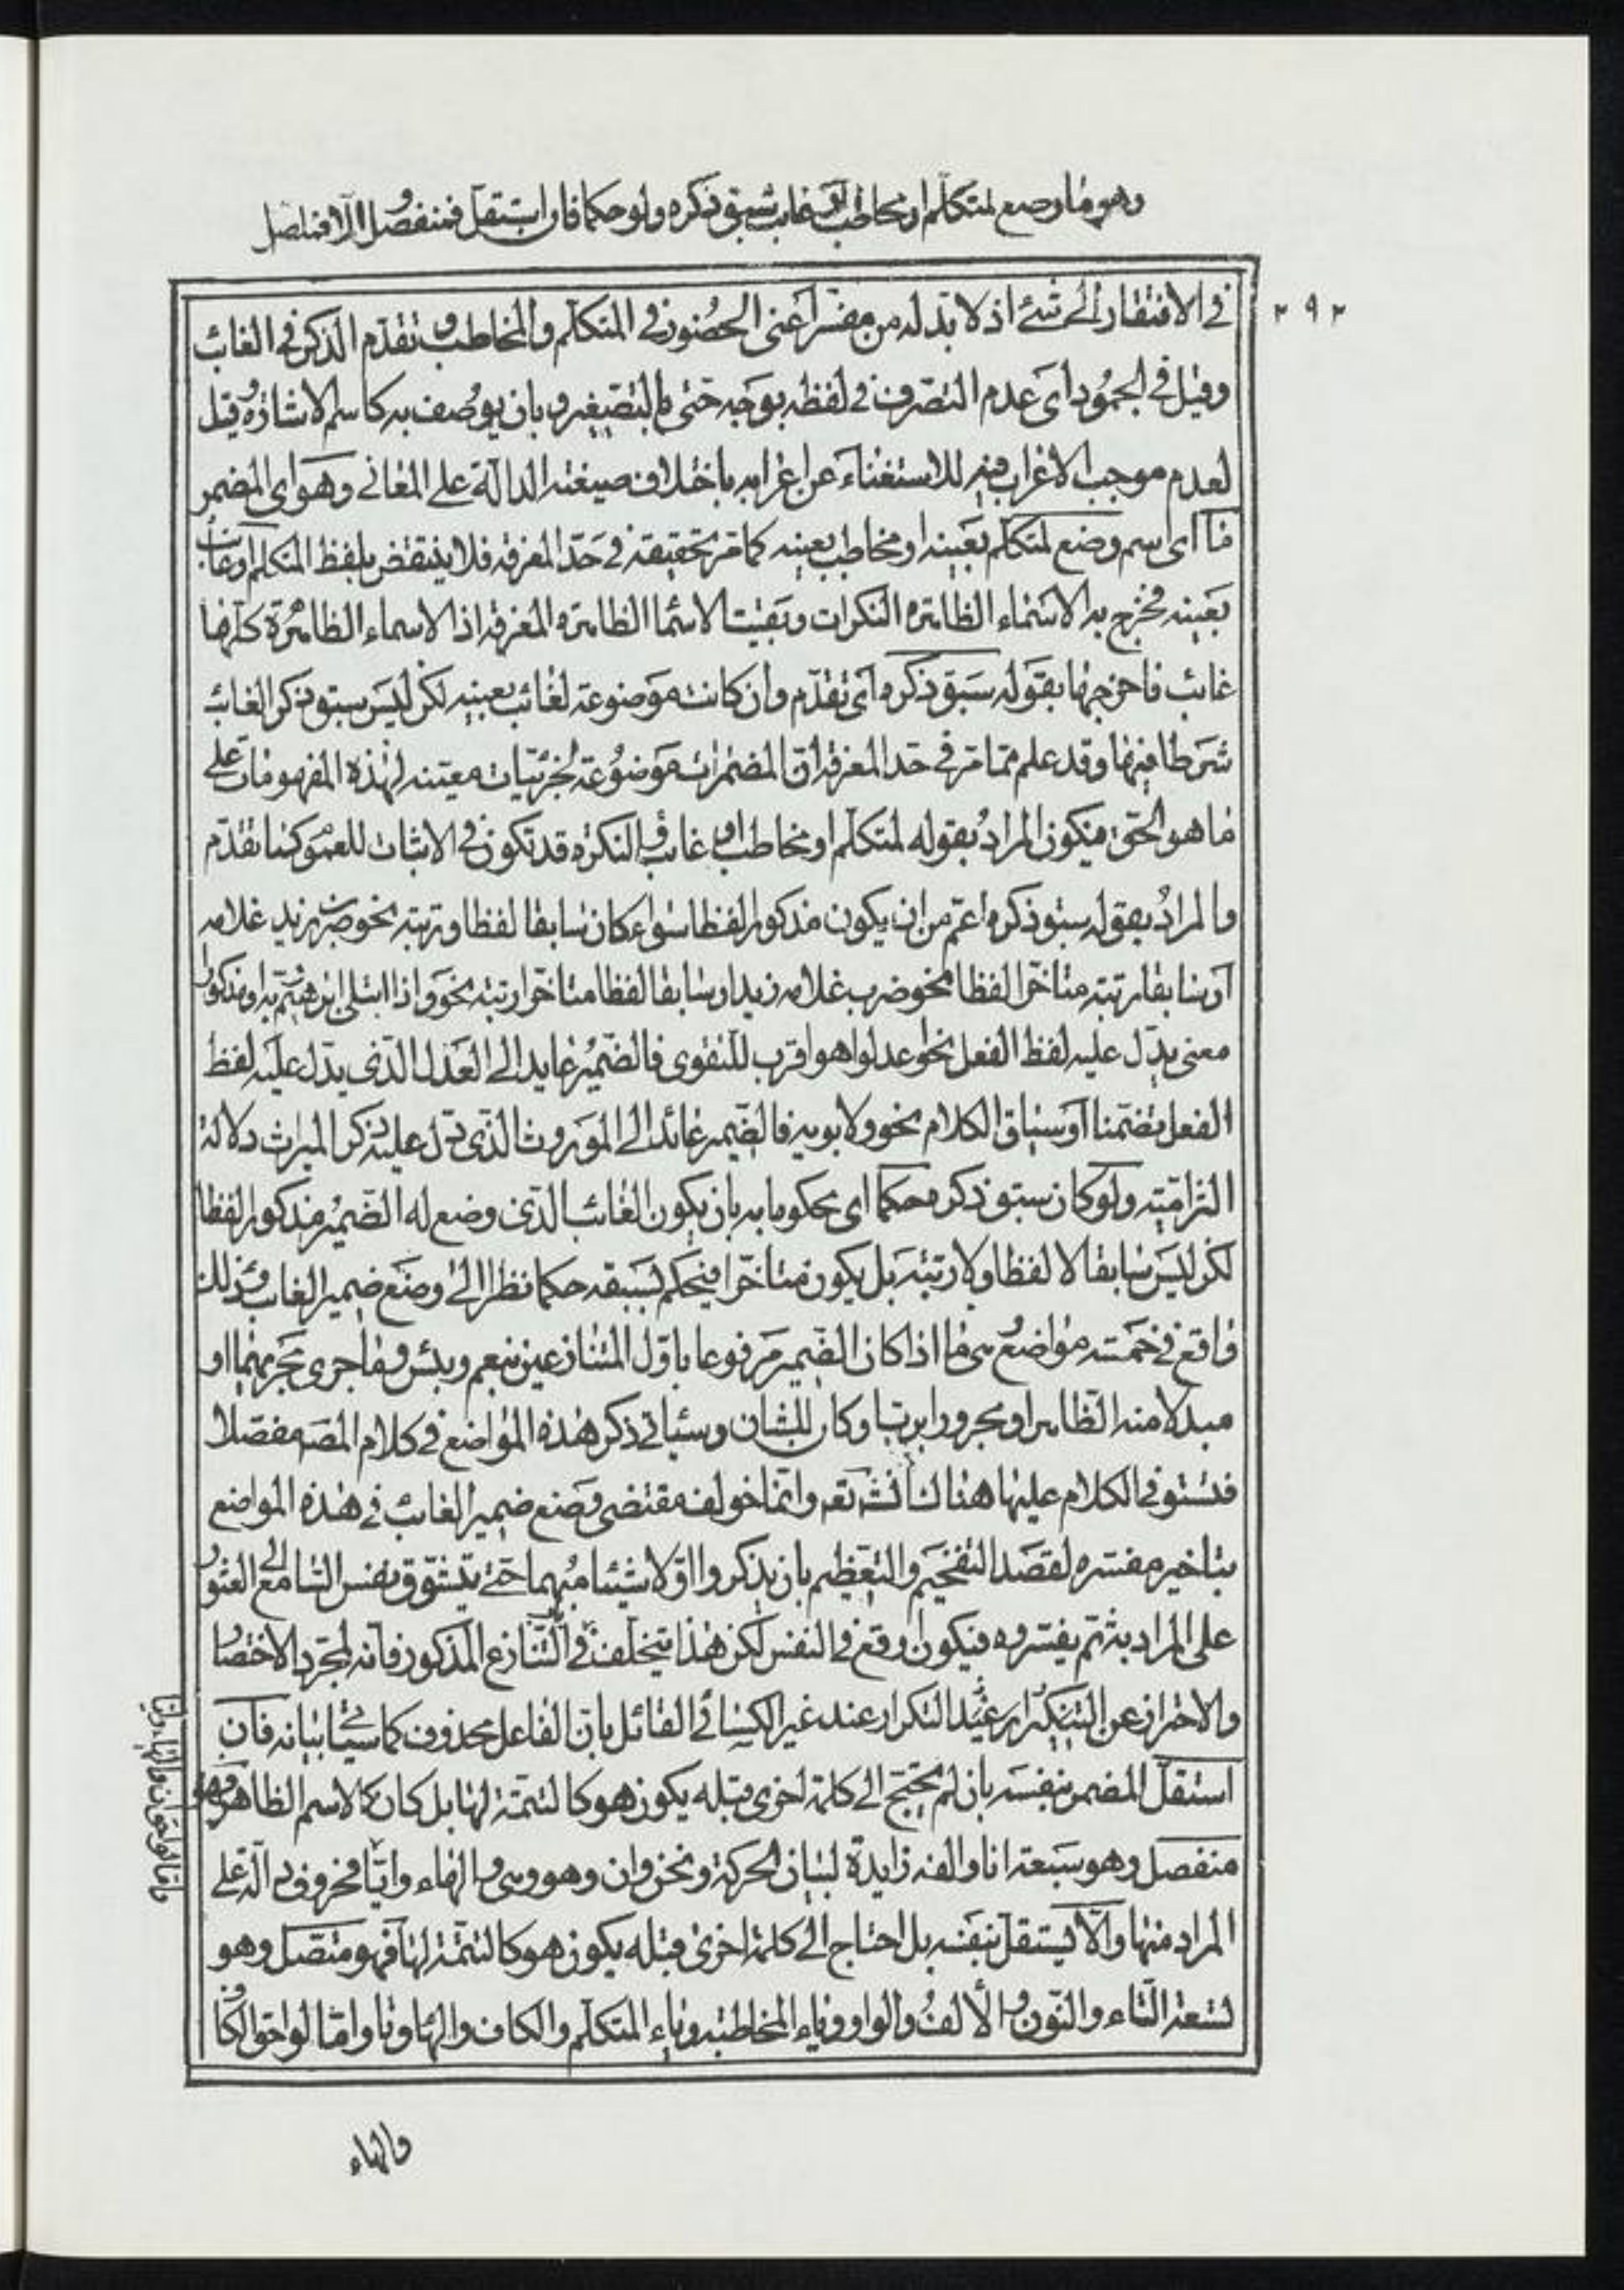 وهو ما وضع لمتكلم او مخاطب او غايب سبق ذكره ولو حكما فان استقل فمنفصل والا فمتصل
٢٩٢
في الافتقار الى شئ اذ لا بد له من مفسر اعنى الحضور في المتكلم والمخاطب وتقدم الذكر في الغائب
وقيل في الجمود اى عدم التصرف في لفظه بوجه حتى بالتصغير وبان يوصف به كاسم الاشارة وقيل
لعدم موجب الاعراب فيه للاستغناء عن اعرابه باختلاف صيغته الدالة على المعانى وهو اى المضمر
ما اى اسم وضع لمتكلم بعينه او مخاطب بعينه كما مر تحقيقه في حد المعرفة فلا ينتقض بلفظ المتكلم او غائب
بعينه فخرج به الاسماء الظاهرة النكرات وبقيت الاسما الظاهرة المعرفة اذ الاسماء الظاهرة كلها
غائب فاخرجها بقوله سبق ذكره اى تقدم وان كانت موضوعة لغائب بعينه لكن ليس سبق ذكر الغائب
شرطا فيها وقد علم مما مر في حد المعرفة ان المضمرات موضوعة لجزئيات معينة لهذه المفهومات على
ما هو الحق فيكون المراد بقوله لمتكلم او مخاطب او غايب والنكرة قد تكون في الاثبات للعموم كما تقدم
والمراد بقوله سبق ذكره اعم من ان يكون مذكورا لفظا سواء كان سابقا لفظا ورتبة نحو ضرب زيد غلامه
او سابقا رتبة متاخر لفظا نحو ضرب غلامه زيد او سابقا لفظا متاخرا رتبة نحو واذ ابتلى ابرهيم ربه او مذكورا
معنى يدل عليه لفظ الفعل نحو اعدلوا هو اقرب للتقوى فالضمير عايد الى العدل الذى يدل عليه لفظ
الفعل تضمنا او سياق الكلام نحو ولابويه فالضمير عائد الى المورث الذى دل عليه ذكر الميراث دلالة
التزامية ولو كان سبق ذكره حكما اى محكوما به بان يكون الغائب الذى وضع له الضمير مذكورا لفظا
لكن ليس سابقا لا لفظا ولا رتبة بل يكون متاخرا فيحكم بسبقه حكما نظرا الى وضع ضمير الغايب وذلك
واقع في خمسة مواضع هى ما اذا كان الضمير مرفوعا باول المتنازعين بنعم وبئس وما جرى مجريهما او
مبدلا منه الظاهر او مجرورا برب او كان للشان وسياتى ذكر هذه المواضع في كلام المصـ مفصلا
فنستوفي الكلام عليها هنالك انشـ تعـ وانما خولف مقتضى وضع ضمير الغائب في هذه المواضع
بتاخير مفسره لقصد التفخيم والتعظيم بان يذكروا اولا شيئا مبهما حتى يتشوق نفس السامع الى العثور
على المراد به ثم يفسروه فيكون اوقع في النفس لكن هذا يتخلف في التنازع المذكور فانه لمجرد الاختصار
والاحتراز عن التكرار عند غير الكسائى القائل بان الفاعل محذوف كما سيأتى بيانه فان
استقل المضمر بنفسه بان لم يحتج الى كلمة اخرى قبله يكون هو كالتتمة لها بل كان كالاسم الظاهر فهو
منفصل وهو سبعة انا والفه زايدة لبيان الحركة ونحن وان وهو وهى والهاء وايا فحروف دالة على
المراد منها والا يستقل بنفسه بل احتاج الى كلمة اخرى قبله يكون هو كالتتمة لها فهو متصل وهو
تسعة التاء والنون والالف والواو وياء المخاطبة وياء المتكلم والكاف والهاء ونا واما لواحق الكاف
والهاء